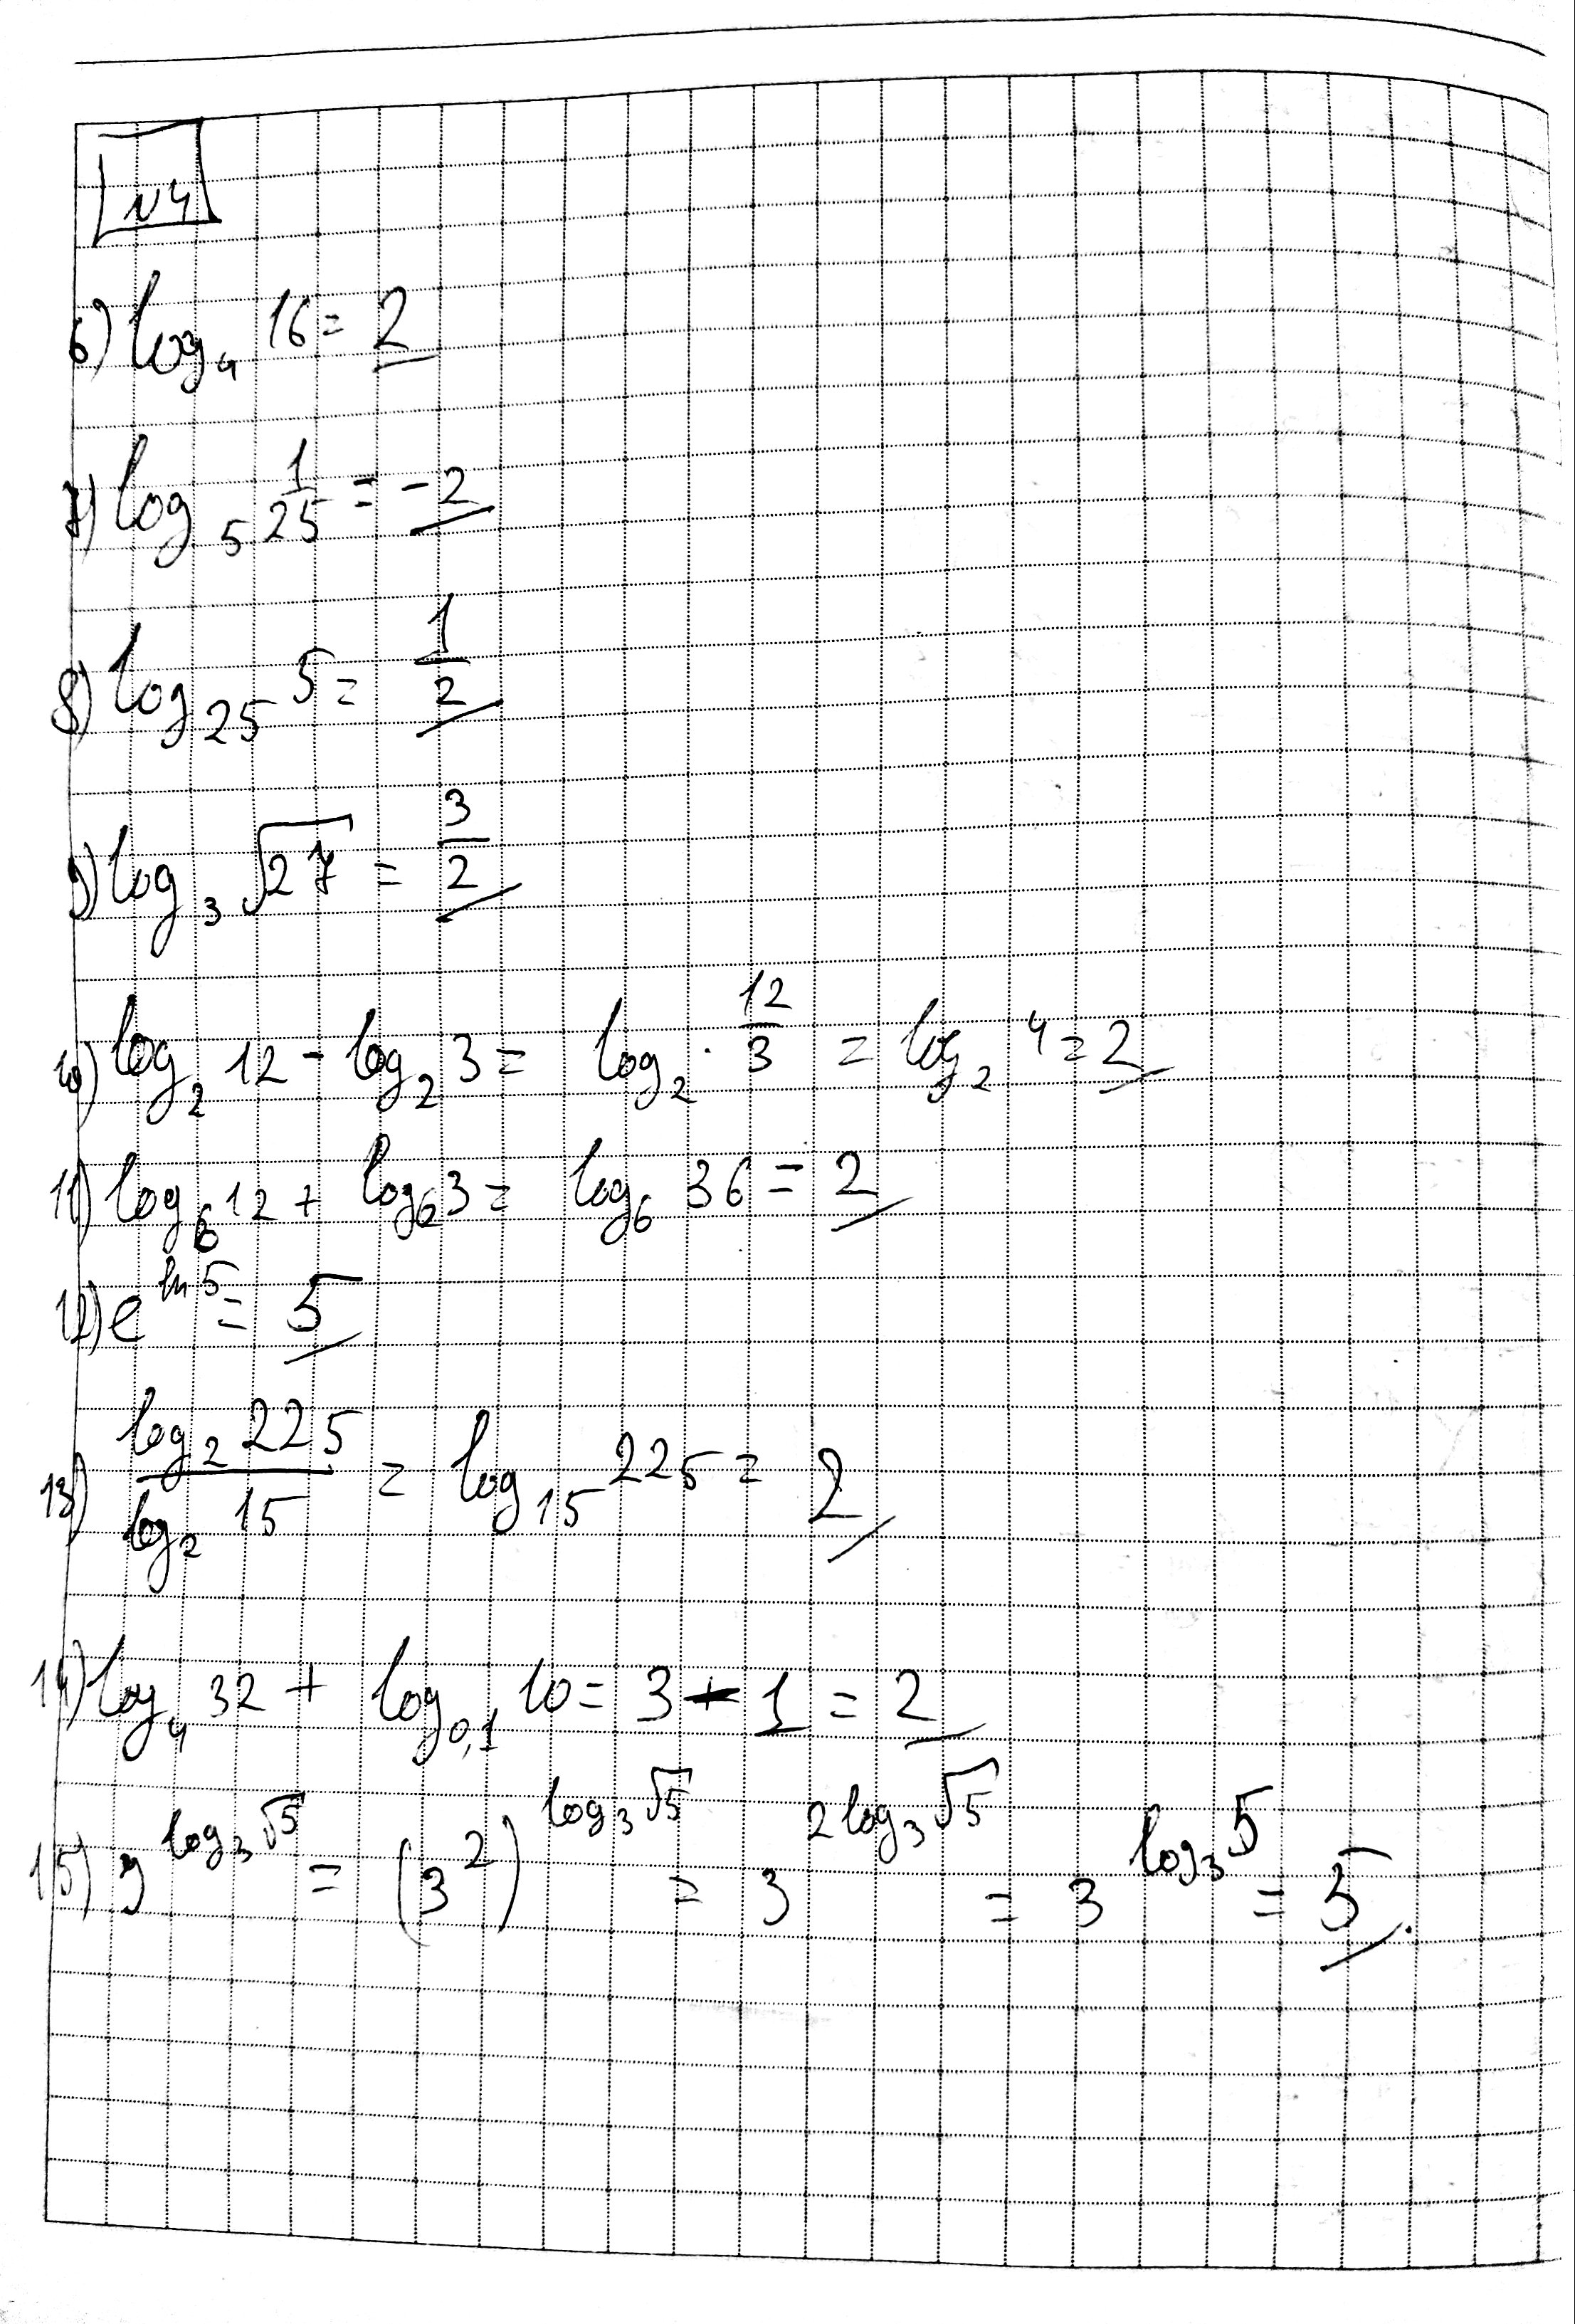 N4
6) log₄ 16 = 2
7) log₅ 1/25 = -2
8) log₂₅ 5 = 1/2
9) log₃ √27 = 3/2
10) log₂ 12 - log₂ 3 = log₂ · 12/3 = log₂ 4 = 2
11) log₆ 12 + log₆ 3 = log₆ 36 = 2
12) e^(ln 5) = 5
13) (log₂ 225)/(log₂ 15) = log₁₅ 225 = 2
14) log₄ 32 + log₀,₁ 10 = 3 - 1 = 2
15) 9^(log₃ √5) = (3²)^(log₃ √5) = 3^(2 log₃ √5) = 3^(log₃ 5) = 5.